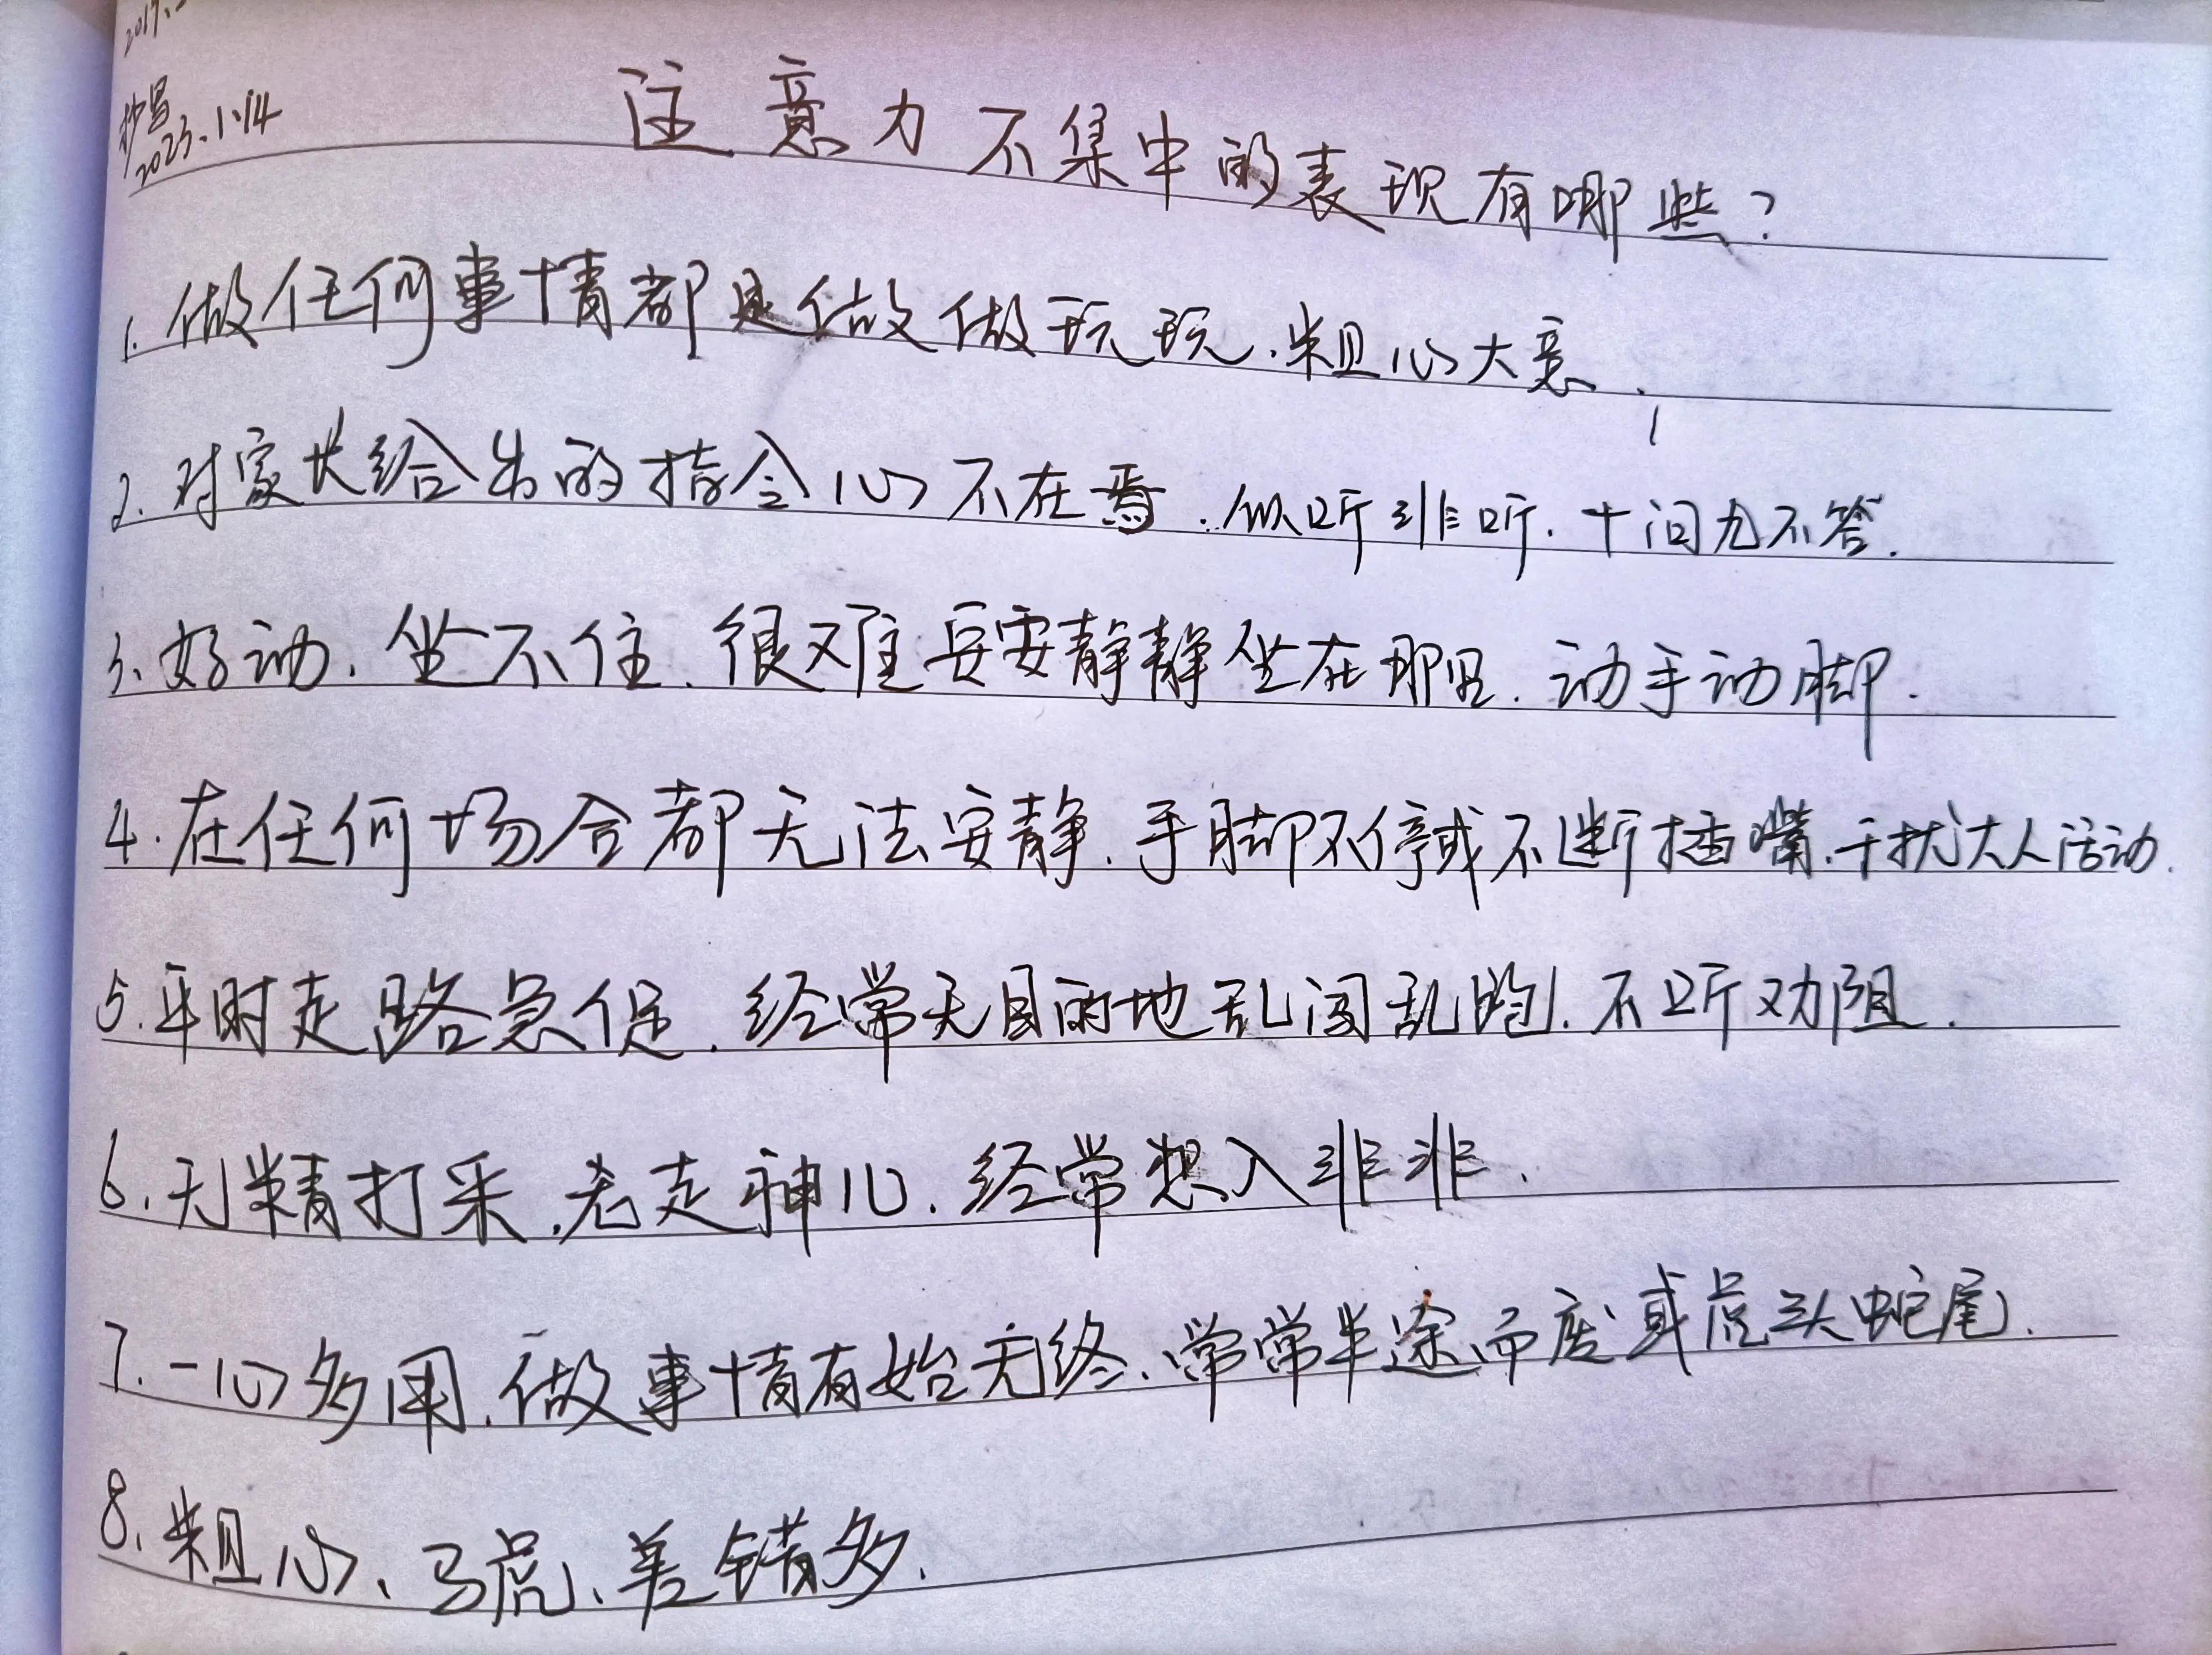 2017.
抄写
2023.1.14
注意力不集中的表现有哪些?
1.做任何事情都是做做玩玩.粗心大意.
2.对家长给出的指令心不在焉.似听非听.十问九不答.
3.好动.坐不住.很难安安静静坐在那里.动手动脚.
4.在任何场合都无法安静.手脚不停或不断插嘴.干扰大人活动.
5.平时走路急促.经常无目的地乱闯乱跑.不听劝阻.
6.无精打采.老走神儿.经常想入非非.
7.一心多用.做事情有始无终.常常半途而废或虎头蛇尾.
8.粗心、马虎、差错多.